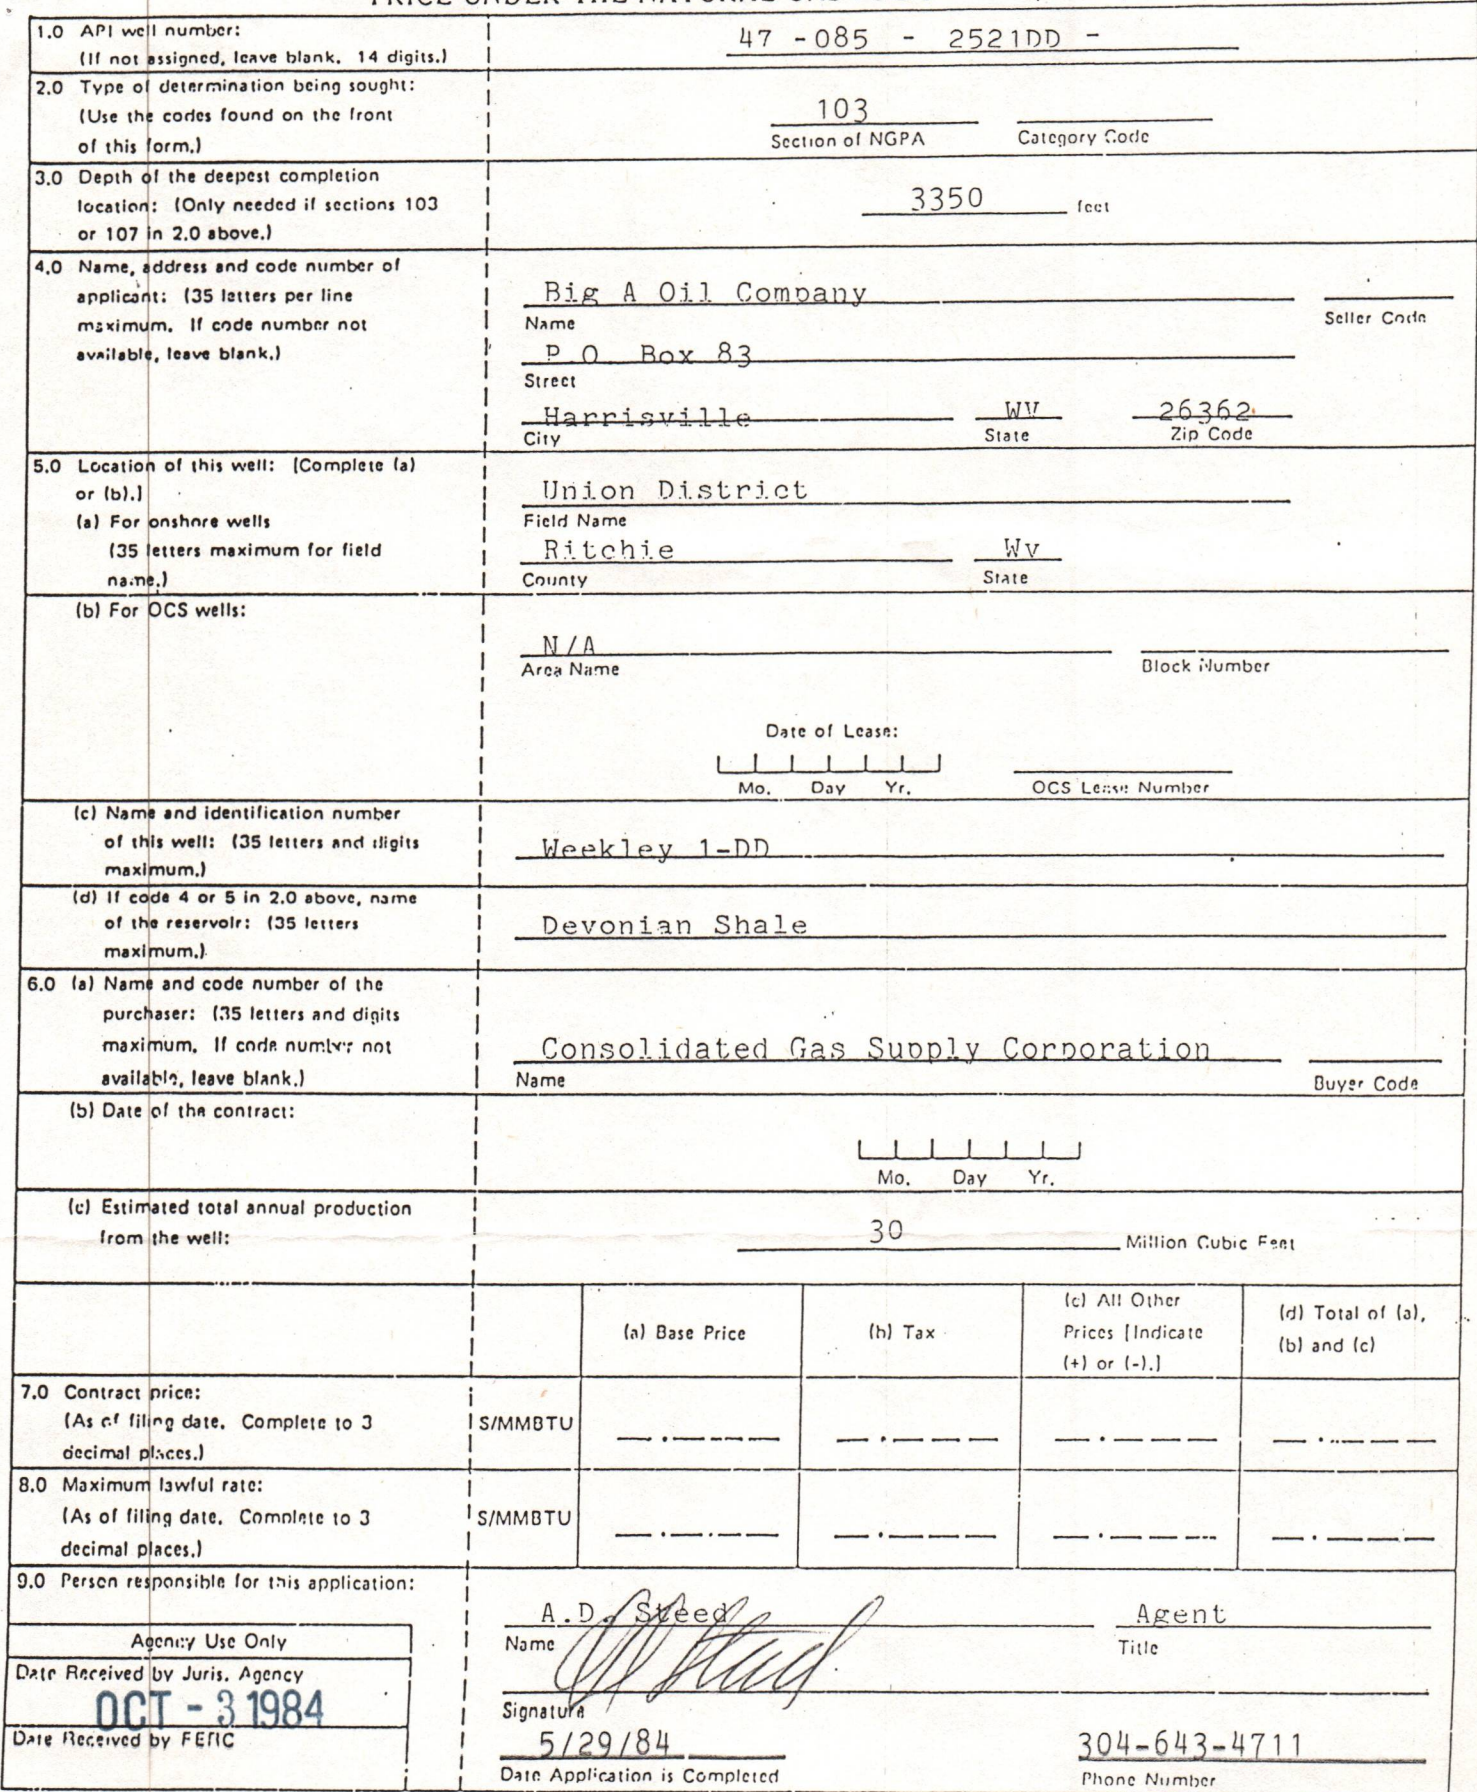 1.0 API well number:
(If not assigned, leave blank. 14 digits.)
47 -085 - 2521DD -
2.0 Type of determination being sought:
(Use the codes found on the front
of this form.)
103
Section of NGPA
Category Code
3.0 Depth of the deepest completion
location: (Only needed if sections 103
or 107 in 2.0 above.)
3350 feet
4.0 Name, address and code number of
applicant: (35 letters per line
maximum. If code number not
available, leave blank.)
Big A Oil Company
Name
Seller Code
P.O. Box 83
Street
Harrisville WV 26362
City State Zip Code
5.0 Location of this well: [Complete (a)
or (b).]
(a) For onshore wells
(35 letters maximum for field
name.)
Union District
Field Name
Ritchie Wv
County State
(b) For OCS wells:
N/A
Area Name Block Number
Date of Lease:
Mo. Day Yr. OCS Lease Number
(c) Name and identification number
of this well: (35 letters and digits
maximum.)
Weekley 1-DD
(d) If code 4 or 5 in 2.0 above, name
of the reservoir: (35 letters
maximum.)
Devonian Shale
6.0 (a) Name and code number of the
purchaser: (35 letters and digits
maximum. If code number not
available, leave blank.)
Consolidated Gas Supply Corporation
Name Buyer Code
(b) Date of the contract:
Mo. Day Yr.
(c) Estimated total annual production
from the well:
30 Million Cubic Feet
(a) Base Price
(b) Tax
(c) All Other
Prices [Indicate
(+) or (-).]
(d) Total of (a),
(b) and (c)
7.0 Contract price:
(As of filing date. Complete to 3
decimal places.)
S/MMBTU
8.0 Maximum lawful rate:
(As of filing date. Complete to 3
decimal places.)
S/MMBTU
9.0 Person responsible for this application:
Agency Use Only
Date Received by Juris. Agency
OCT - 3 1984
Date Received by FERC
A.D. Steed Agent
Name Title
Signature
5/29/84 304-643-4711
Date Application is Completed Phone Number